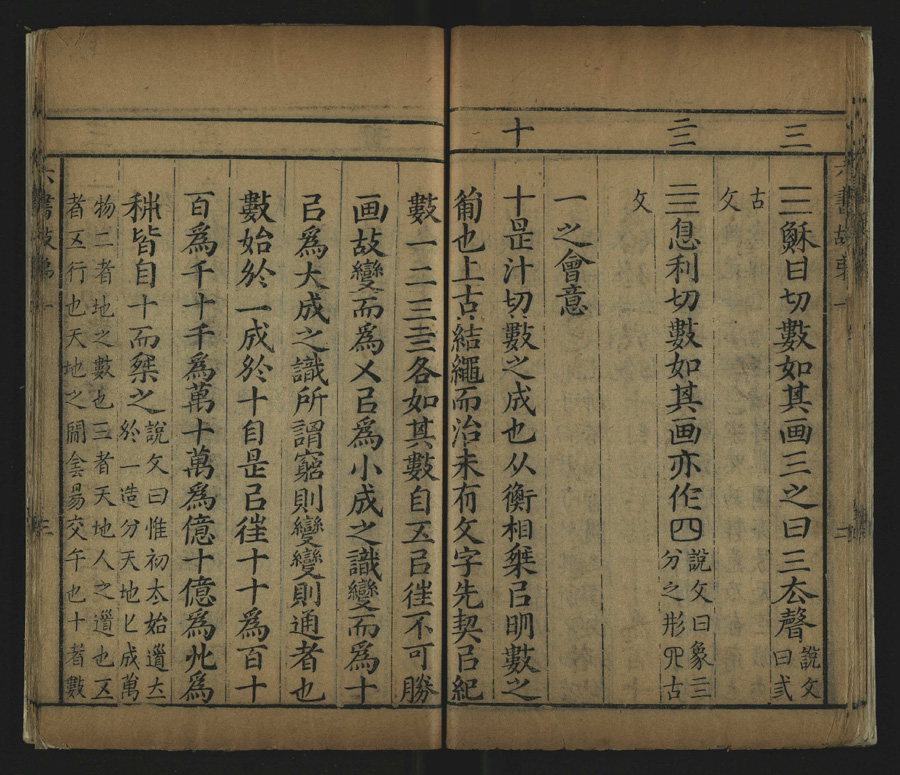 三
亖
十
三穌曰切數如其画三之曰三厺聲
說文
曰弎
古
文
亖息利切數如其画亦作四
說文曰象亖
分之形𦉭古
文
一之會意
十是汁切數之成也从衡相椉㠯明數之
葡也上古結繩而治未有文字先契㠯紀
數一二三亖各如其數自𠄡㠯徃不可勝
画故變而為㐅㠯為小成之識變而為十
㠯為大成之識所謂窮則變變則通者也
數始於一成於十自是㠯徃十十為百十
百為千十千為萬十萬為億十億為兆為
秭皆自十而椉之
說文曰惟初太始道立
於一造分天地匕成萬
物二者地之數也三者天地人之道也𠄡
者𠄡行也天地之間侌昜交午也十者數